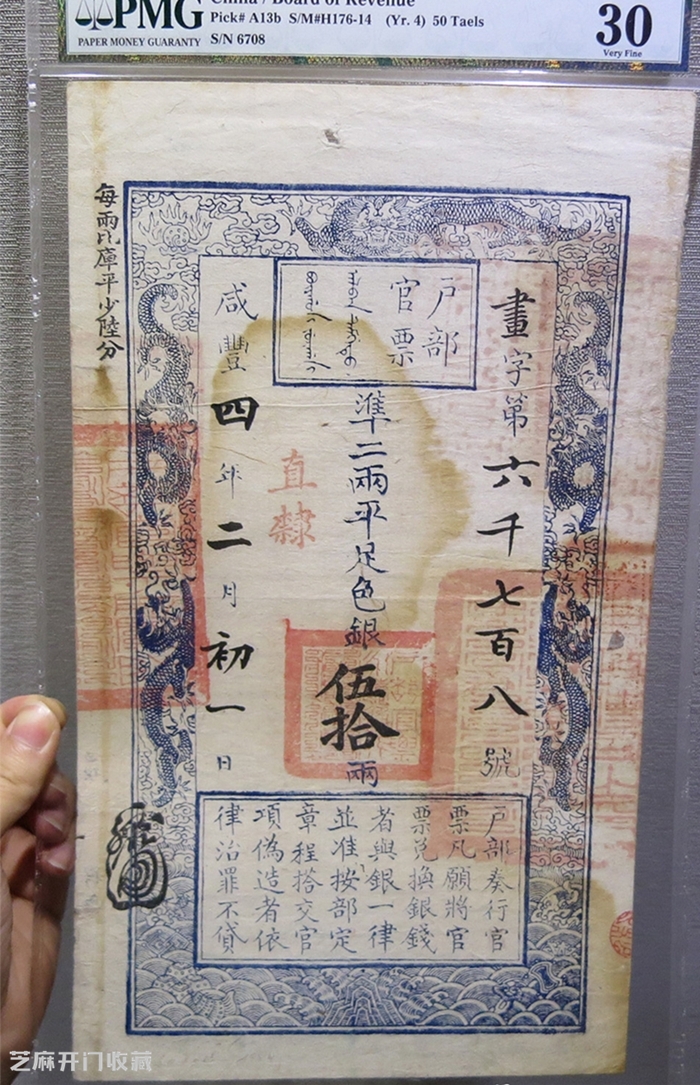 PMG
PAPER MONEY GUARANTY
China / Board of Revenue
Pick# A13b S/M#H176-14 (Yr. 4) 50 Taels
S/N 6708
30
Very Fine
每兩比庫平少陸分
戶部
官票
畫字第六千七百八號
準二兩平足色銀伍拾兩
直隸
咸豐四年二月初一日
戶部奏行官
票凡願將官
票兌換銀錢
者與銀一律
並准按部定
章程搭交官
項偽造者依
律治罪不貸
芝麻开门收藏